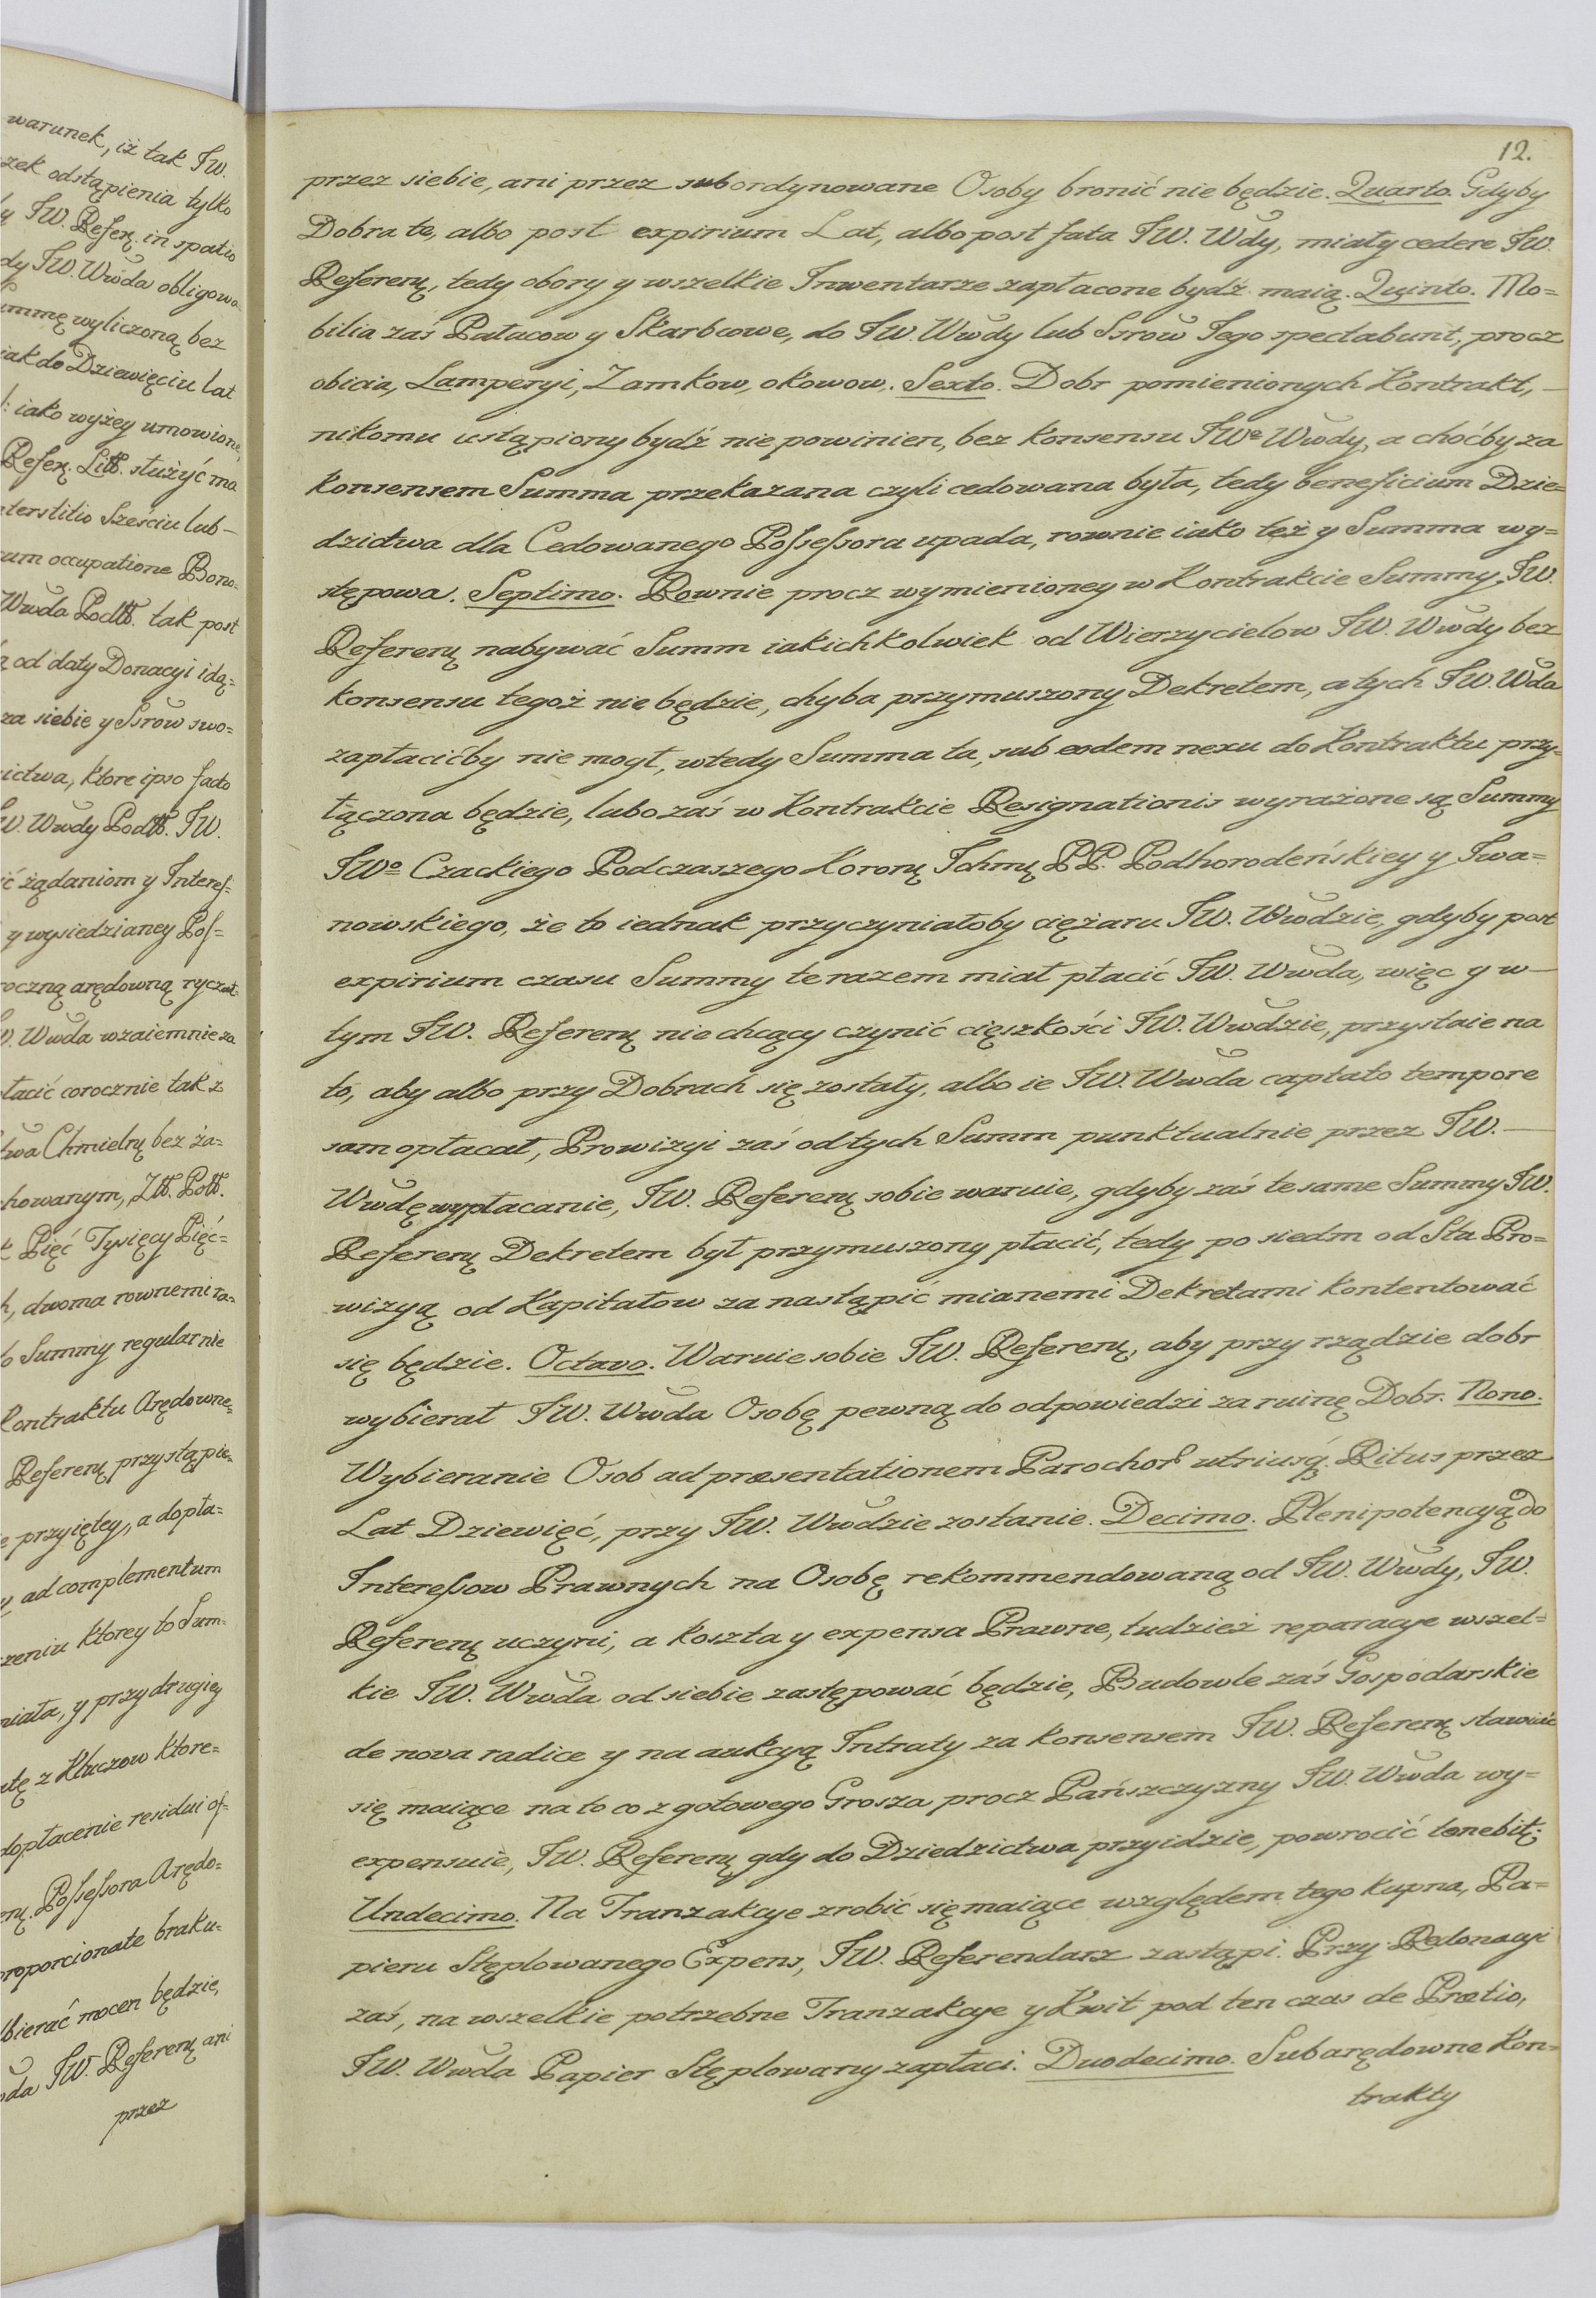 warunek, iż tak JW.
zek odstąpienia tylko
JW. Referų in spatio
dy JW. Wwda obligowa
ummę wyliczoną bez
iak do Dziewięciu Lat
iako wyżey umowione,
Referų. Litt. służyć ma
terstitio Sześciu lub —
um occupatione Bono=
Wwda Podtt. tak post
od daty Donacyi idą=
za siebie y Ssrow swo=
ictwa, ktore ipso facto
W. Wwdy Podtt. JW.
ć żądaniom y Interess=
y wysiedzianey Pos=
oczną arędowną ryczał
W. Wwda wzaiemnie za
łacić corocznie tak z
twa Chmielų bez ża=
chowanym, Ztt. Poltt.
Pięć Tysięcy Pięć=
h, dwoma rownemi ra=
o Summy regularnie
Kontraktu Arędowne=
Referenų przystąpie=
e przyiętey, a dopła=
ad complementum
zeniu ktorey to Sum=
miała, y przy drugiey
atę z Kluczow ktore=
dopłacenie residui of=
enų. Possessora Arędo=
proporcionate braku=
bierać mocen będzie,
da JW. Referenų ani
przez
12.
przez siebie, ani przez subordynowane Osoby bronić nie będzie. Quarto. Gdyby
Dobra te, albo post expirium Lat, albo post fata JW. Wdy, miały cedere JW.
Referenų, tedy obory y wszelkie Inwentarze zapłacone bydź maią. Quinto. Mo=
bilia zaś Pałacow y Skarbcowe, do JW. Wwdy lub Ssrow Jego spectabunt, procz
obicia, Lamperyi, Zamkow, okowow. Sexto. Dobr pomienionych Kontrakt, —
nikomu ustąpiony bydź nie powinien, bez konsensu JWo Wwdy, a choćby za
konsensem Summa przekazana czyli cedowana była, tedy beneficium Dzie=
dzictwa dla Cedowanego Possessora upada, rownie iako też y Summa wy=
stępowa. Septimo. Rownie procz wymienioney w Kontrakcie Summy, JW.
Referenų nabywać Summ iakichkolwiek od Wierzycielow JW. Wwdy bez
konsensu tegoż nie będzie, chyba przymuszony Dekretem, a tych JW. Wda
zapłacićby nie mogł, wtedy Summa ta, sub eodem nexu do Kontraktu przy=
łączona będzie, lubo zaś w Kontrakcie Resignationis wyrażone są Summy
JWo Czackiego Podczaszego Koronų Ichmų PP. Podhorodeńskiey y Iwa=
nowskiego, że to iednak przyczyniałoby ciężaru JW. Wwdzie, gdyby post
expirium czasu Summy te razem miał płacić JW. Wwda, więc y w —
tym JW. Referenų nie chcący czynić cięszkości JW. Wwdzie, przystaie na
to, aby albo przy Dobrach się zostały, albo ie JW. Wwda captato tempore
sam opłacał, Prowizyi zaś od tych Summ punktualnie przez JW. —
Wwdę wypłacanie, JW. Referenų sobie waruie, gdyby zaś te same Summy JW.
Referenų Dekretem był przymuszony płacić, tedy po siedm od Sta Pro=
wizyą od Kapitałow za nastąpić mianemi Dekretami kontentować
się będzie. Octavo. Waruie sobie JW. Referenų, aby przy rządzie dobr
wybierał JW. Wwda Osobę pewną do odpowiedzi za ruinę Dobr. Nono.
Wybieranie Osob ad præsentationem Parochor utriusq. Ritus przez
Lat Dziewięć, przy JW. Wwdzie zostanie. Decimo. Plenipotencyą do
Interessow Prawnych na Osobę rekommendowaną od JW. Wwdy, JW.
Referenų uczyni, a koszta y expensa Prawne, tudzież reparacye wszel=
kie JW. Wwda od siebie zastępować będzie, Budowle zaś Gospodarskie
de nova radice y na aukcyą Intraty za konsensem JW. Referenų stawiać
się maiące na to co z gotowego Grosza procz Pańszczyzny JW. Wwda wy=
expensuie, JW. Referenų gdy do Dziedzictwa przyidzie, powrocić tenebit;
Undecimo. Na Tranzakcye zrobić się maiące względem tego kupna, Pa=
pieru Stęplowanego Expens, JW. Referendarz zastąpi. Przy Redonacyi
zaś, na wszelkie potrzebne Tranzakcye y Kwit pod ten czas de Prætio,
JW. Wwda Papier Stęplowany zapłaci. Duodecimo. Subarędowne Kon=
trakty